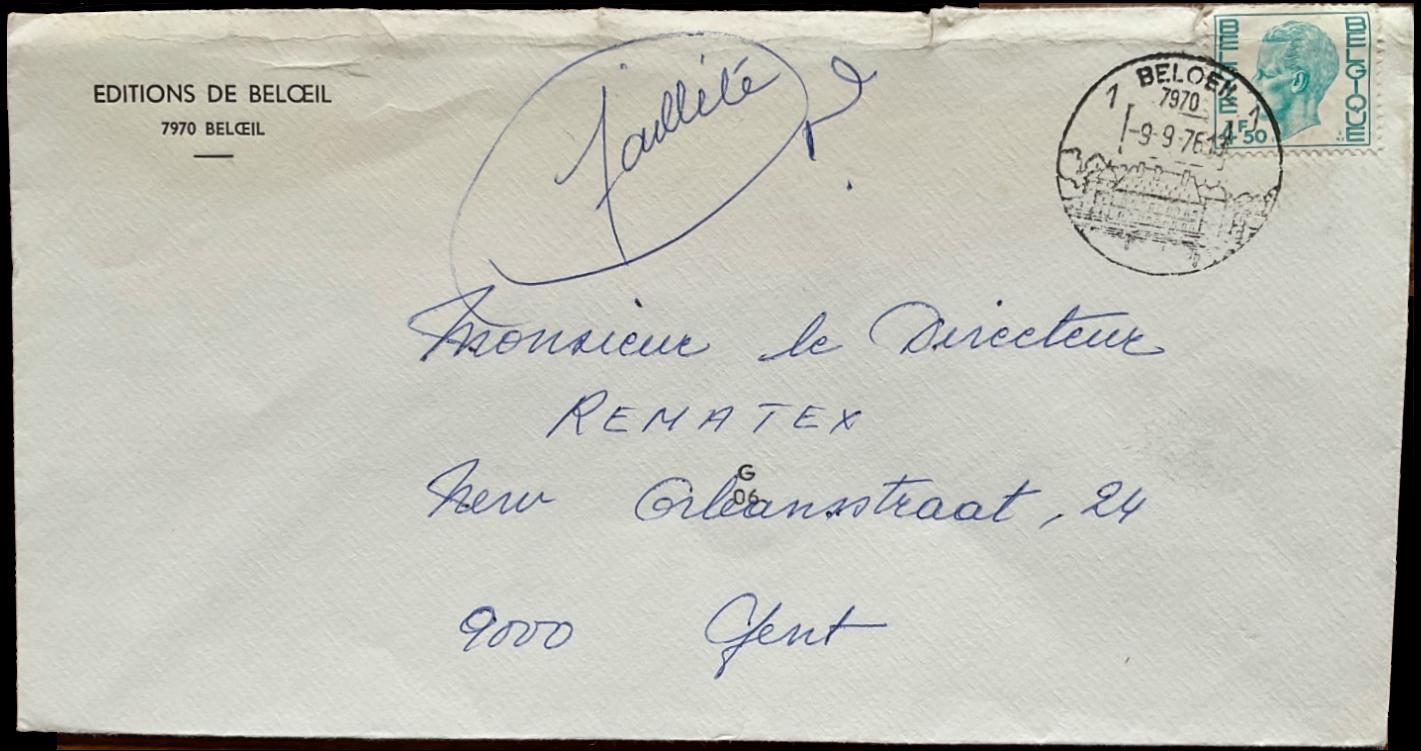 EDITIONS DE BELŒIL
7970 BELŒIL
faillite
BELOEIL
7970
1 1
-9-9-76
BELGIQUE
4F50
Monsieur le Directeur
REMATEX
New Orleansstraat, 24
G
06
9000 Gent